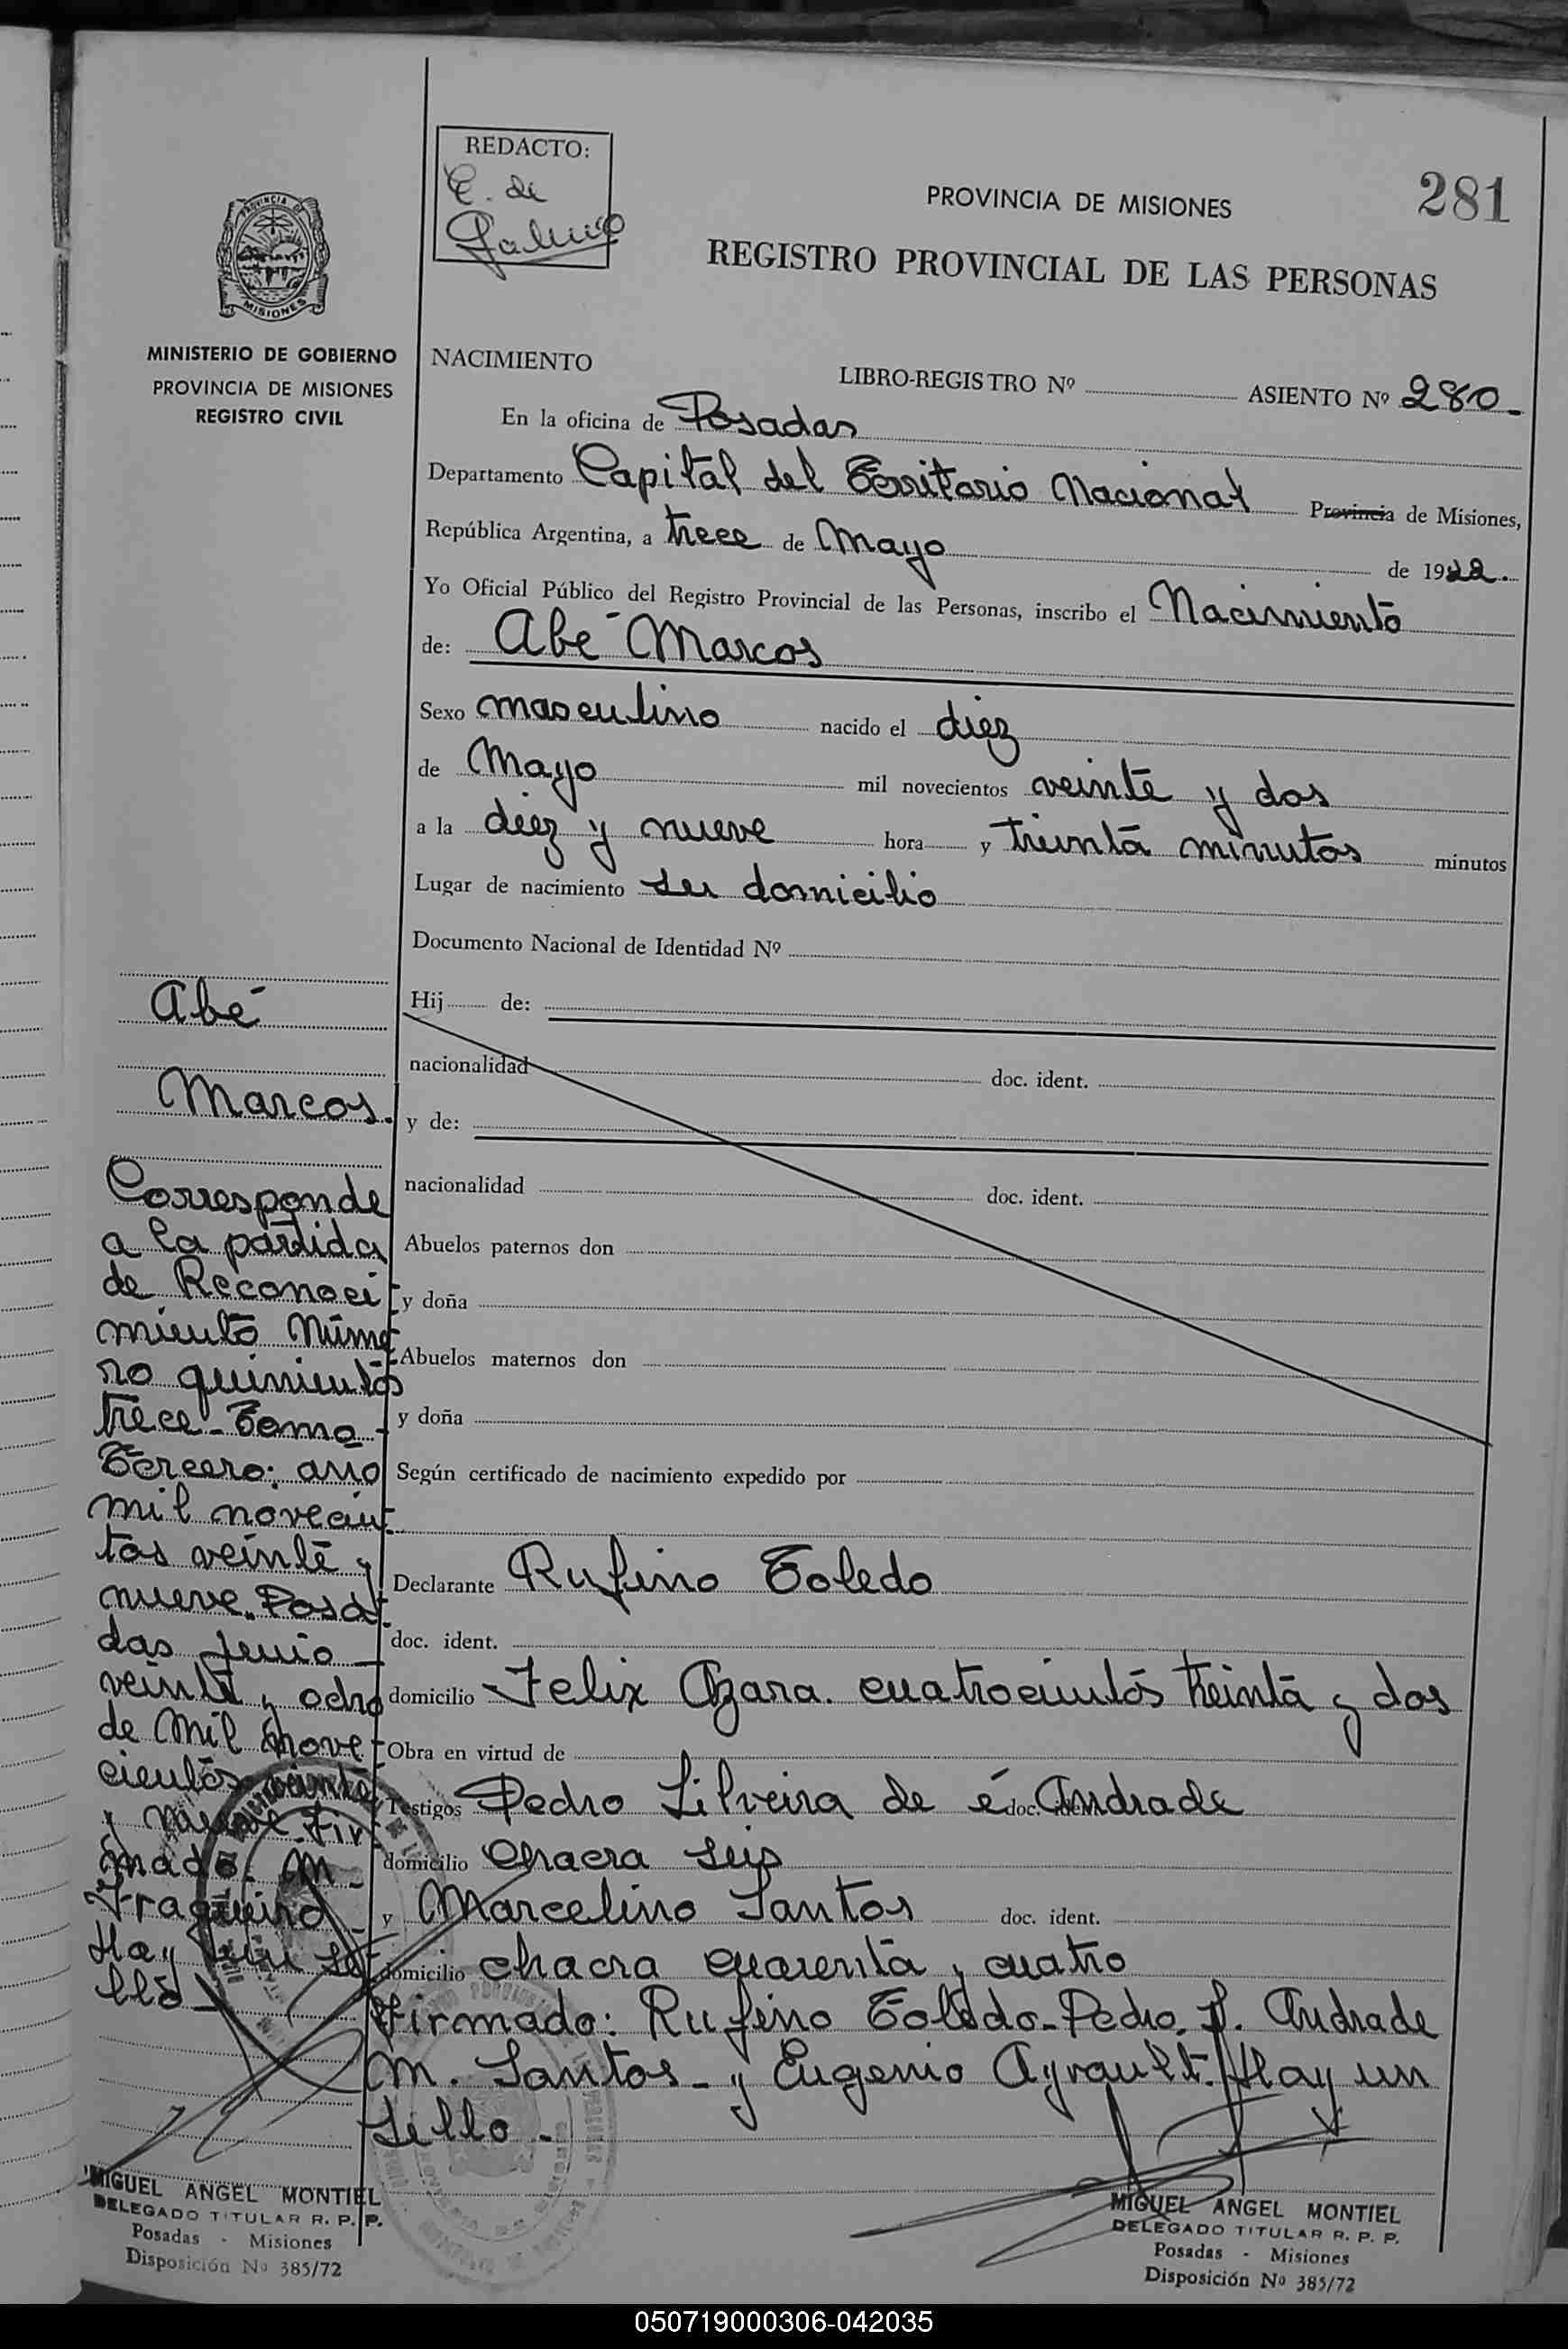 REDACTO:
E. de
281
PROVINCIA DE MISIONES
REGISTRO PROVINCIAL DE LAS PERSONAS
PROVINCIA DE
MISIONES
MINISTERIO DE GOBIERNO
PROVINCIA DE MISIONES
REGISTRO CIVIL
NACIMIENTO
LIBRO-REGISTRO Nº ASIENTO Nº 280.
En la oficina de Posadas
Departamento Capital del Territorio Nacional Provincia de Misiones,
República Argentina, a trece de Mayo de 1922.
Yo Oficial Público del Registro Provincial de las Personas, inscribo el Nacimiento
de: Abé Marcos
Sexo masculino nacido el diez
de Mayo mil novecientos veinte y dos
a la diez y nueve hora y treinta minutos minutos
Lugar de nacimiento su domicilio
Documento Nacional de Identidad Nº
Hij de:
nacionalidad doc. ident.
y de:
nacionalidad doc. ident.
Abuelos paternos don
y doña
Abuelos maternos don
y doña
Según certificado de nacimiento expedido por
Declarante Rufino Toledo
doc. ident.
domicilio Felix Azara. cuatrocientos treinta y dos
Obra en virtud de
Testigos Pedro Silveira de é doc. Andrade
domicilio Chacra seis
y Marcelino Santos doc. ident.
domicilio chacra cuarenta y cuatro
Firmado: Rufino Toledo-Pedro S. Andrade
M. Santos- y Eugenio Ayrault. Hay un
Sello-
Abé
Marcos.
Corresponde
a la partida
de Reconoci
miento Núme
ro quinientos
trece-Tomo-
Tercero: año
mil novecien
tos veinte y
nueve. Posa
das junio-
veinte y ocho
de Mil Nove
cientos veinte
y nueve Fir
mado: M.
Fragueiro-
Hay un Se
llo-
MIGUEL ANGEL MONTIEL
DELEGADO TITULAR R. P. P.
Posadas - Misiones
Disposición Nº 385/72
MIGUEL ANGEL MONTIEL
DELEGADO TITULAR R. P. P.
Posadas - Misiones
Disposición Nº 385/72
050719000306-042035